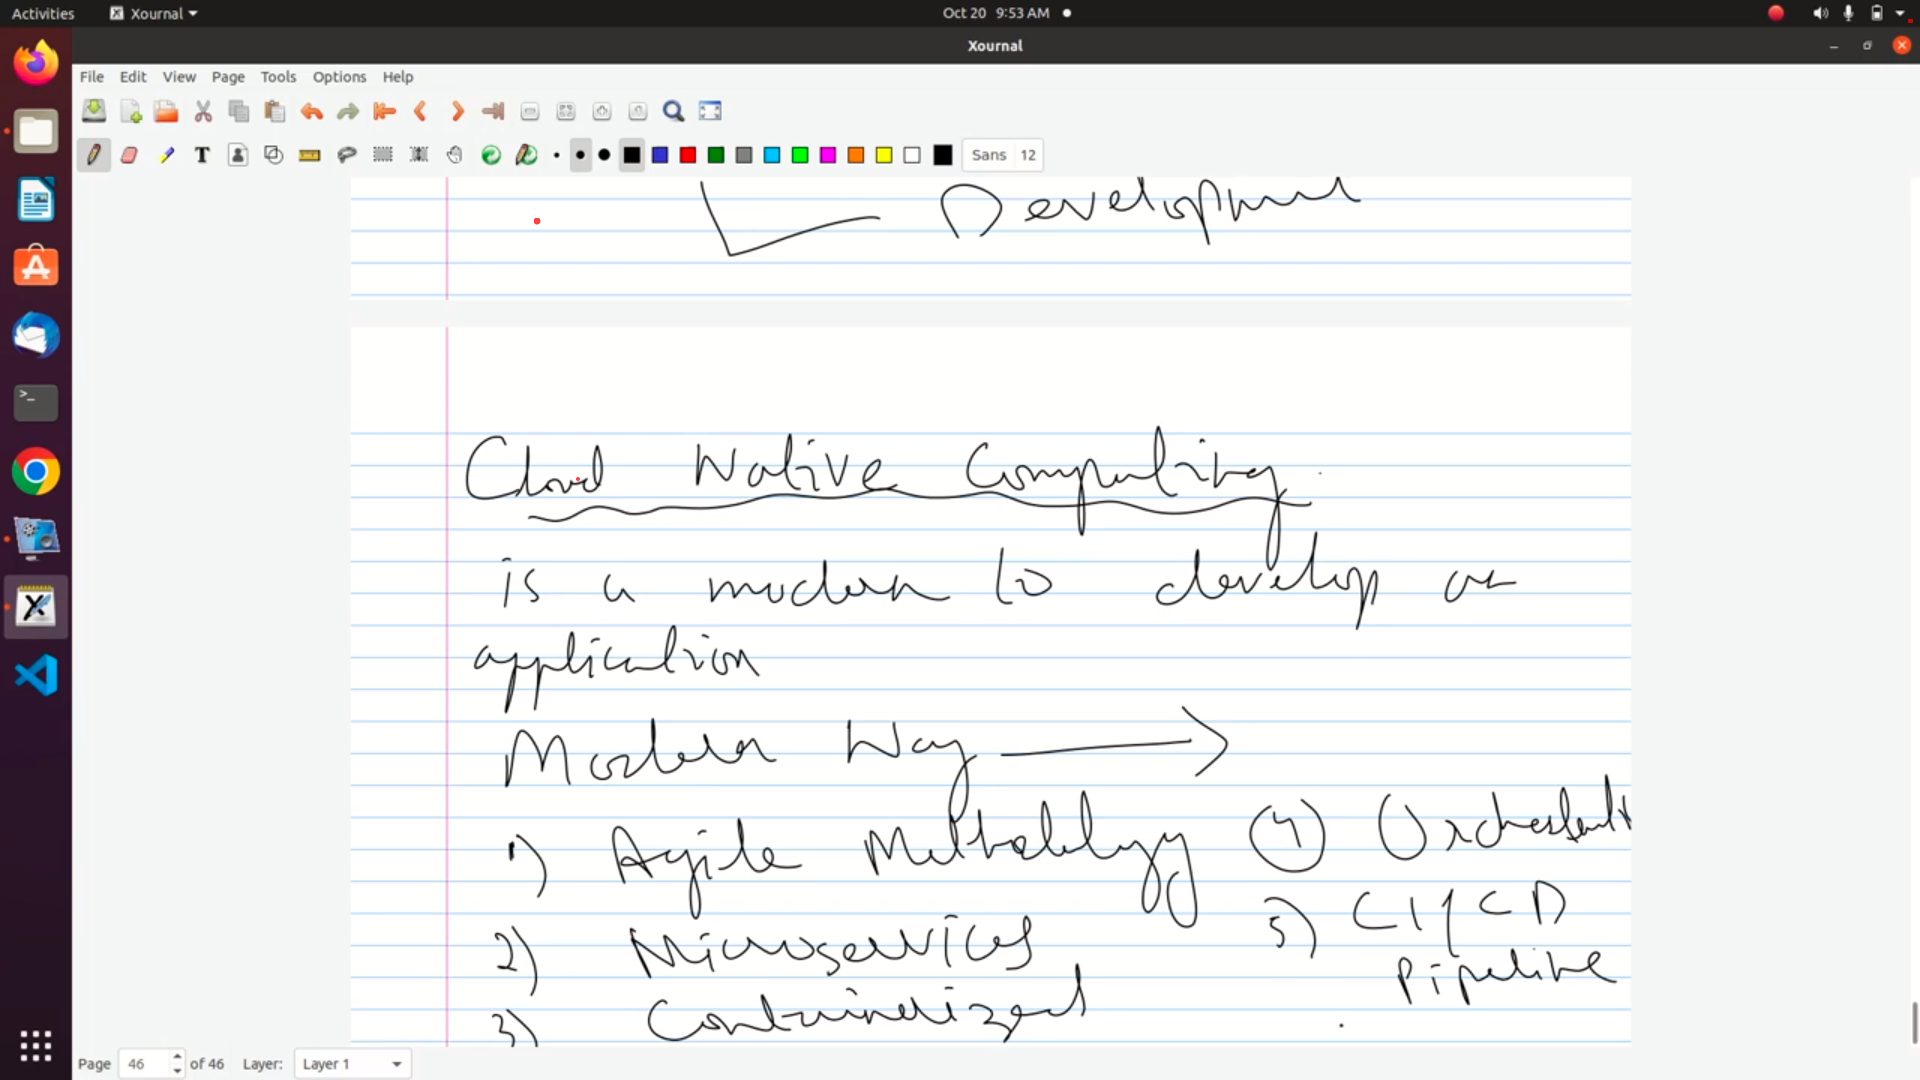 Activities Xournal Oct 20 9:53 AM
Xournal
File Edit View Page Tools Options Help
T Sans 12
Development
Cloud Native Computing
is a modern to develop an
application
Modern Way
1) Agile Methodology
2) Microservices
3) Containerized
4
5) CI/CD
Pipeline
Page 46 of 46 Layer: Layer 1